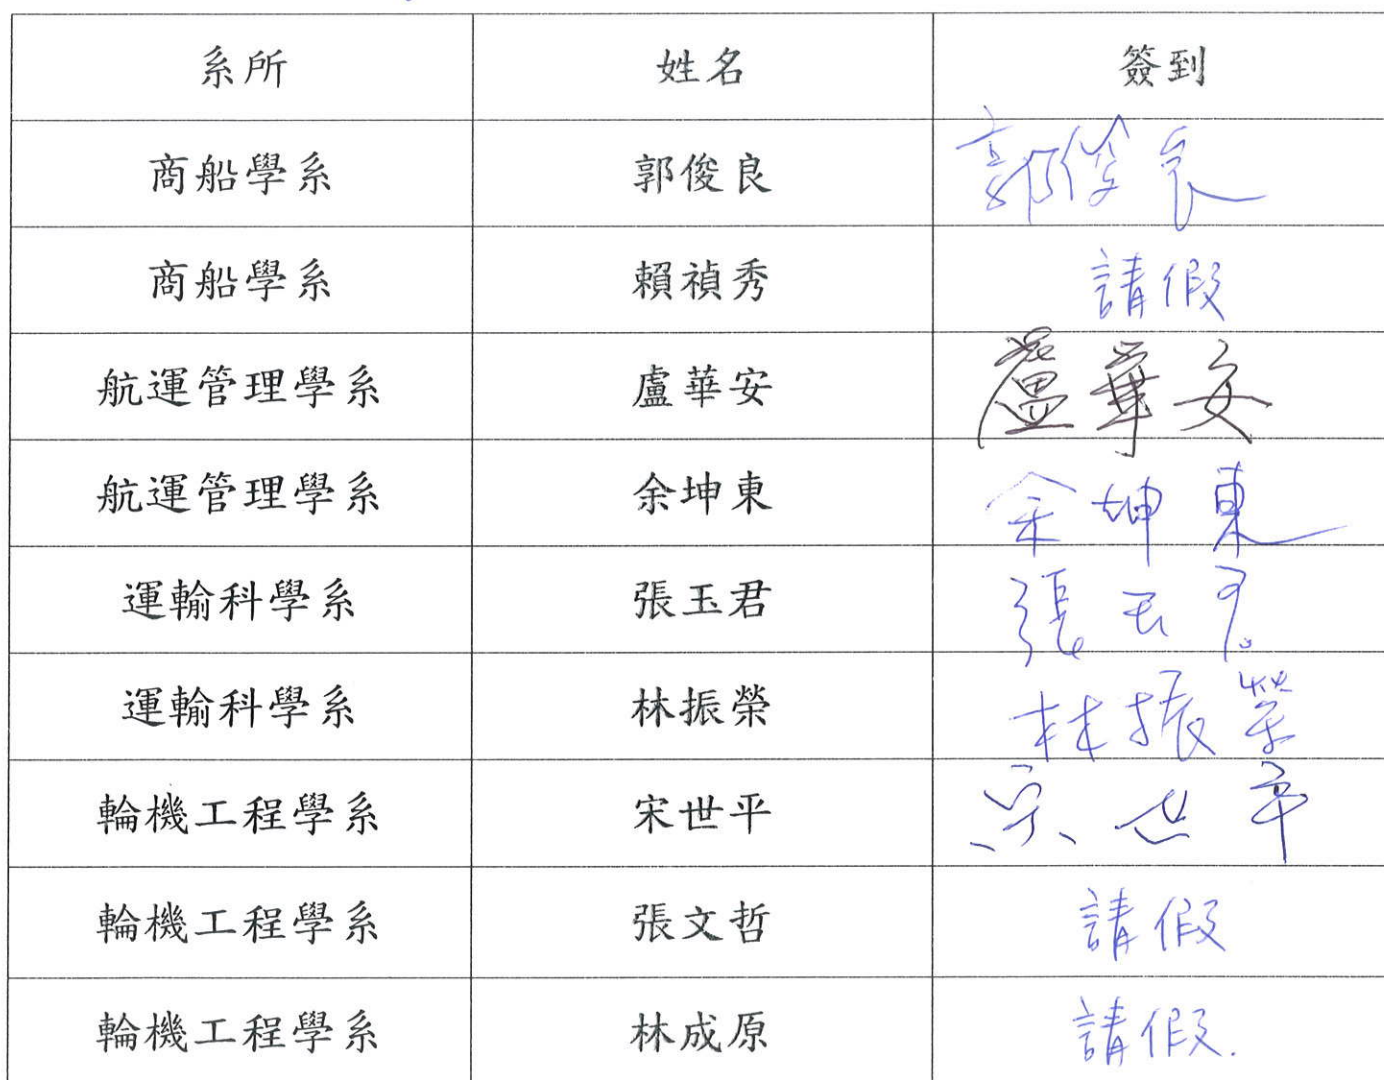 系所 姓名 簽到
商船學系 郭俊良 郭俊良
商船學系 賴禎秀 請假
航運管理學系 盧華安 盧華安
航運管理學系 余坤東 余坤東
運輸科學系 張玉君 張玉君
運輸科學系 林振榮 林振榮
輪機工程學系 宋世平 宋世平
輪機工程學系 張文哲 請假
輪機工程學系 林成原 請假.